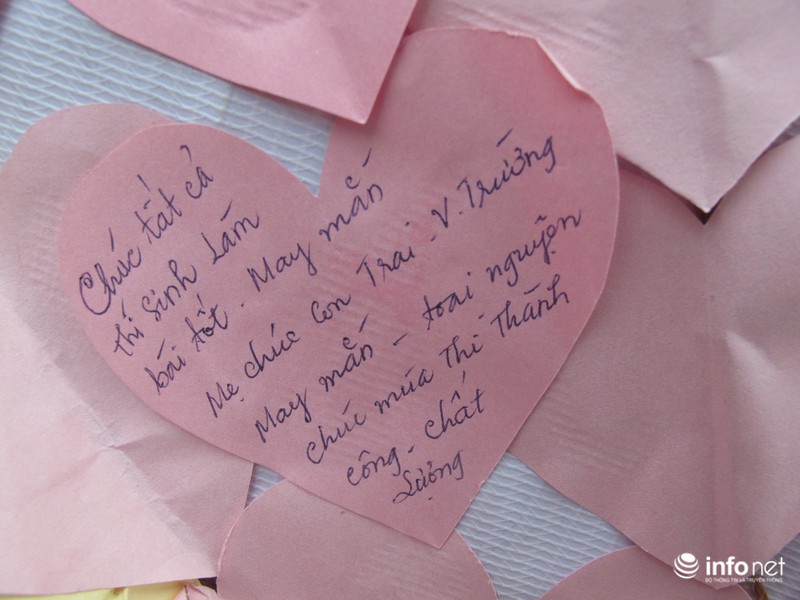 Chúc tất cả
thí sinh Làm
bài tốt. May mắn
Mẹ chúc Con Trai. V. Trường
May mắn - toại nguyện
chúc mùa Thi Thành
công. chất
Lượng
infonet
BỘ THÔNG TIN VÀ TRUYỀN THÔNG